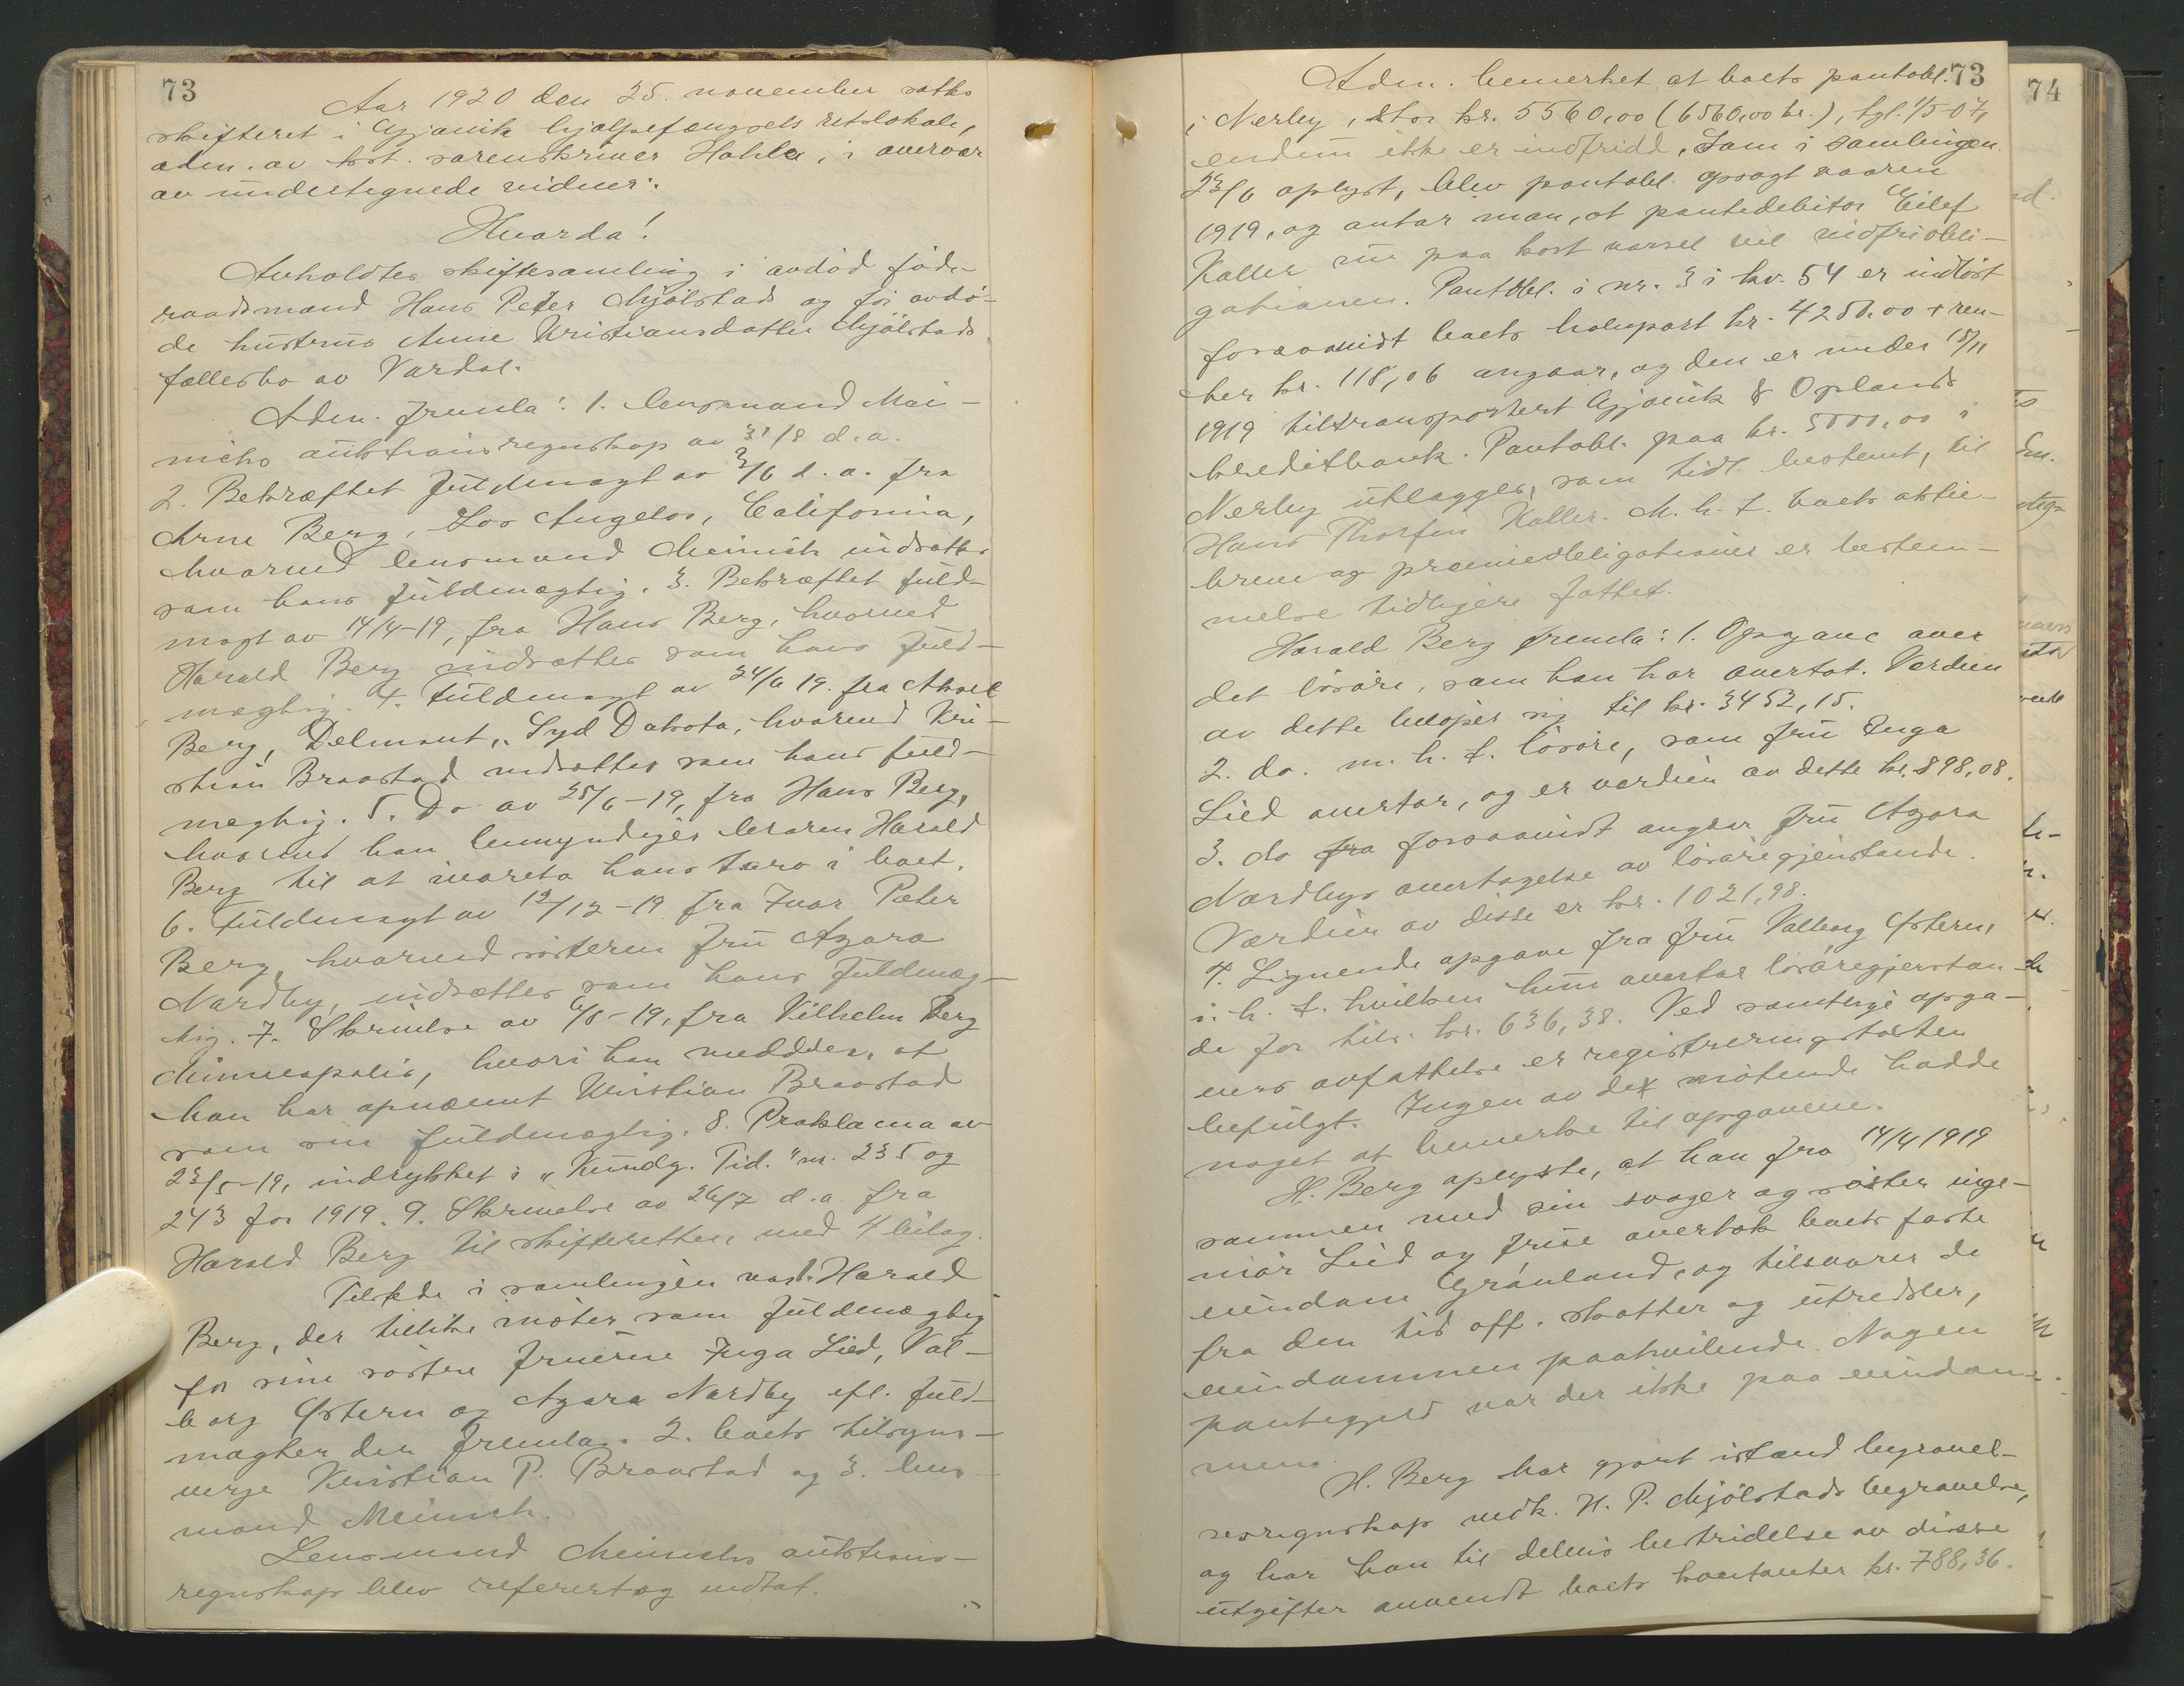 73
Aar 1920 den 25. november sattes
skifteret i Gjøvik hjælpefængsels retslokale,
adm. av kst. sorenskriver Hohle, i overvær
av undertegnede vidner:
Hvorda!
Avholdtes skiftesamling i avdød føde-
raadsmand Hans Peter Mjølstads og før avdø-
de hustrus Anne Kristiansdatter Mjølstads
fællesbo av Vardal.
Adm. fremla: 1. lensmand Mei-
nichs auktionsregnskap av 31/8 d.a.
2. Bekræftet fuldmagt av 3/6 d.a. fra
Arne Berg, Los Angelos, California,
hvorved lensmand Meinich indsættes
som hans fuldmægtig. 3. Bekræftet fuld-
magt av 14/4-19, fra Hans Berg, hvorved
Harald Berg indsættes som hans fuld-
mægtig. 4. Fuldmagt av 24/6 19. fra Aksel
Berg, Delmont, Syd Dakota, hvorved Kri-
stian Braastad indsættes som hans fuld-
mægtig. 5. Do av 25/6-19, fra Hans Berg,
hvorved han bemyndiger læreren Harald
Berg til at ivareta hans tarv i boet.
6. Fuldmagt av 12/12-19 fra Ivar Peter
Berg, hvorved søsteren fru Agara
Nordby, indsættes som hans fuldmæg-
tig. 7. Skrivelse av 6/8-19, fra Vilhelm Berg
Minneapolis, hvori han meddeler, at
han har opnævnt Kristian Braastad
som sin fuldmægtig. 8. Proklama av
23/5-19, indrykket i "Kundg. Tid." nr. 235 og
243 for 1919. 9. Skrivelse av 26/7 d.a. fra
Harald Berg til skifteretten, med 4 bilag.
Tilstede i samlingen var 1. Harald
Berg, der tillike møter som fuldmægtig
for sine søstre fruerne Inga Lied, Val-
borg Østern og Agara Nordby efl. fuld-
magter der fremla. 2. boets tilsyns-
verge Kristian P. Braastad og 3. lens-
mand Meinich.
Lensmand Meinichs auktions-
regnskap blev referert og indtat.
73
Adm. bemerket at boets pantobl.
i Nerby, stor kr. 5560,00 (6560,00 kr.), tgl. 1/5-07,
endnu ikke er indfridd. Som i samlingen
23/6 oplyst, blev pantobl. opsagt vaaren
1919, og antar man, at pantedebitor Eilef
Kaller nu paa kort varsel vil indfri obli-
gationen. Pantobl. i nr. 3 i kv. 54 er indløst
forsaavidt boets halvpart kr. 4250,00 + ren-
ter kr. 118,06 angaar, og den er under 15/11
1919 tiltransportert Gjøvik & Oplands
kreditbank. Pantobl. paa kr. 5000,00 i
Nerby utlægges, som tidl. bestemt, til
Hans Thorfin Kaller. M.h.t. boets aktie-
breve og præmieobligationer er bestem-
melse tidligere fattet.
Harald Berg fremla: 1. Opgave over
det løsøre, som han har overtat. Verdien
av dette beløper sig til kr. 3452,15.
2. do. m.h.t. løsøre, som fru Inga
Lied overtar, og er værdien av dette kr. 898,08.
3. do fra forsaavidt angaar fru Agara
Nordbys overtagelse av løsøregjenstande.
Værdien av disse er kr. 1021,98.
4. Lignende opgave fra fru Valborg Østern,
i.h.t. hvilken hun overtar løsøregjenstan-
de for tils. kr. 636,38. Ved samtlige opga-
vers avfattelse er registreringstaksten
befulgt. Ingen av de møtende hadde
noget at bemerke til opgavene.
H. Berg oplyste, at han fra 14/4 1919
sammen med sin svoger og søster inge-
niør Lied og frue overtok boets faste
eiendom Grønland, og tilsvarer de
fra den tid off. skatter og utredsler,
eiendommen paahvilende. Nogen
pantegjeld var der ikke paa eiendom-
mene.
H. Berg har gjort istand begravel-
sesregnskap vedk. H. P. Mjølstads begravelse,
og har han til delvis bestridelse av disse
utgifter anvendt boets kontanter kr. 788,36.
74